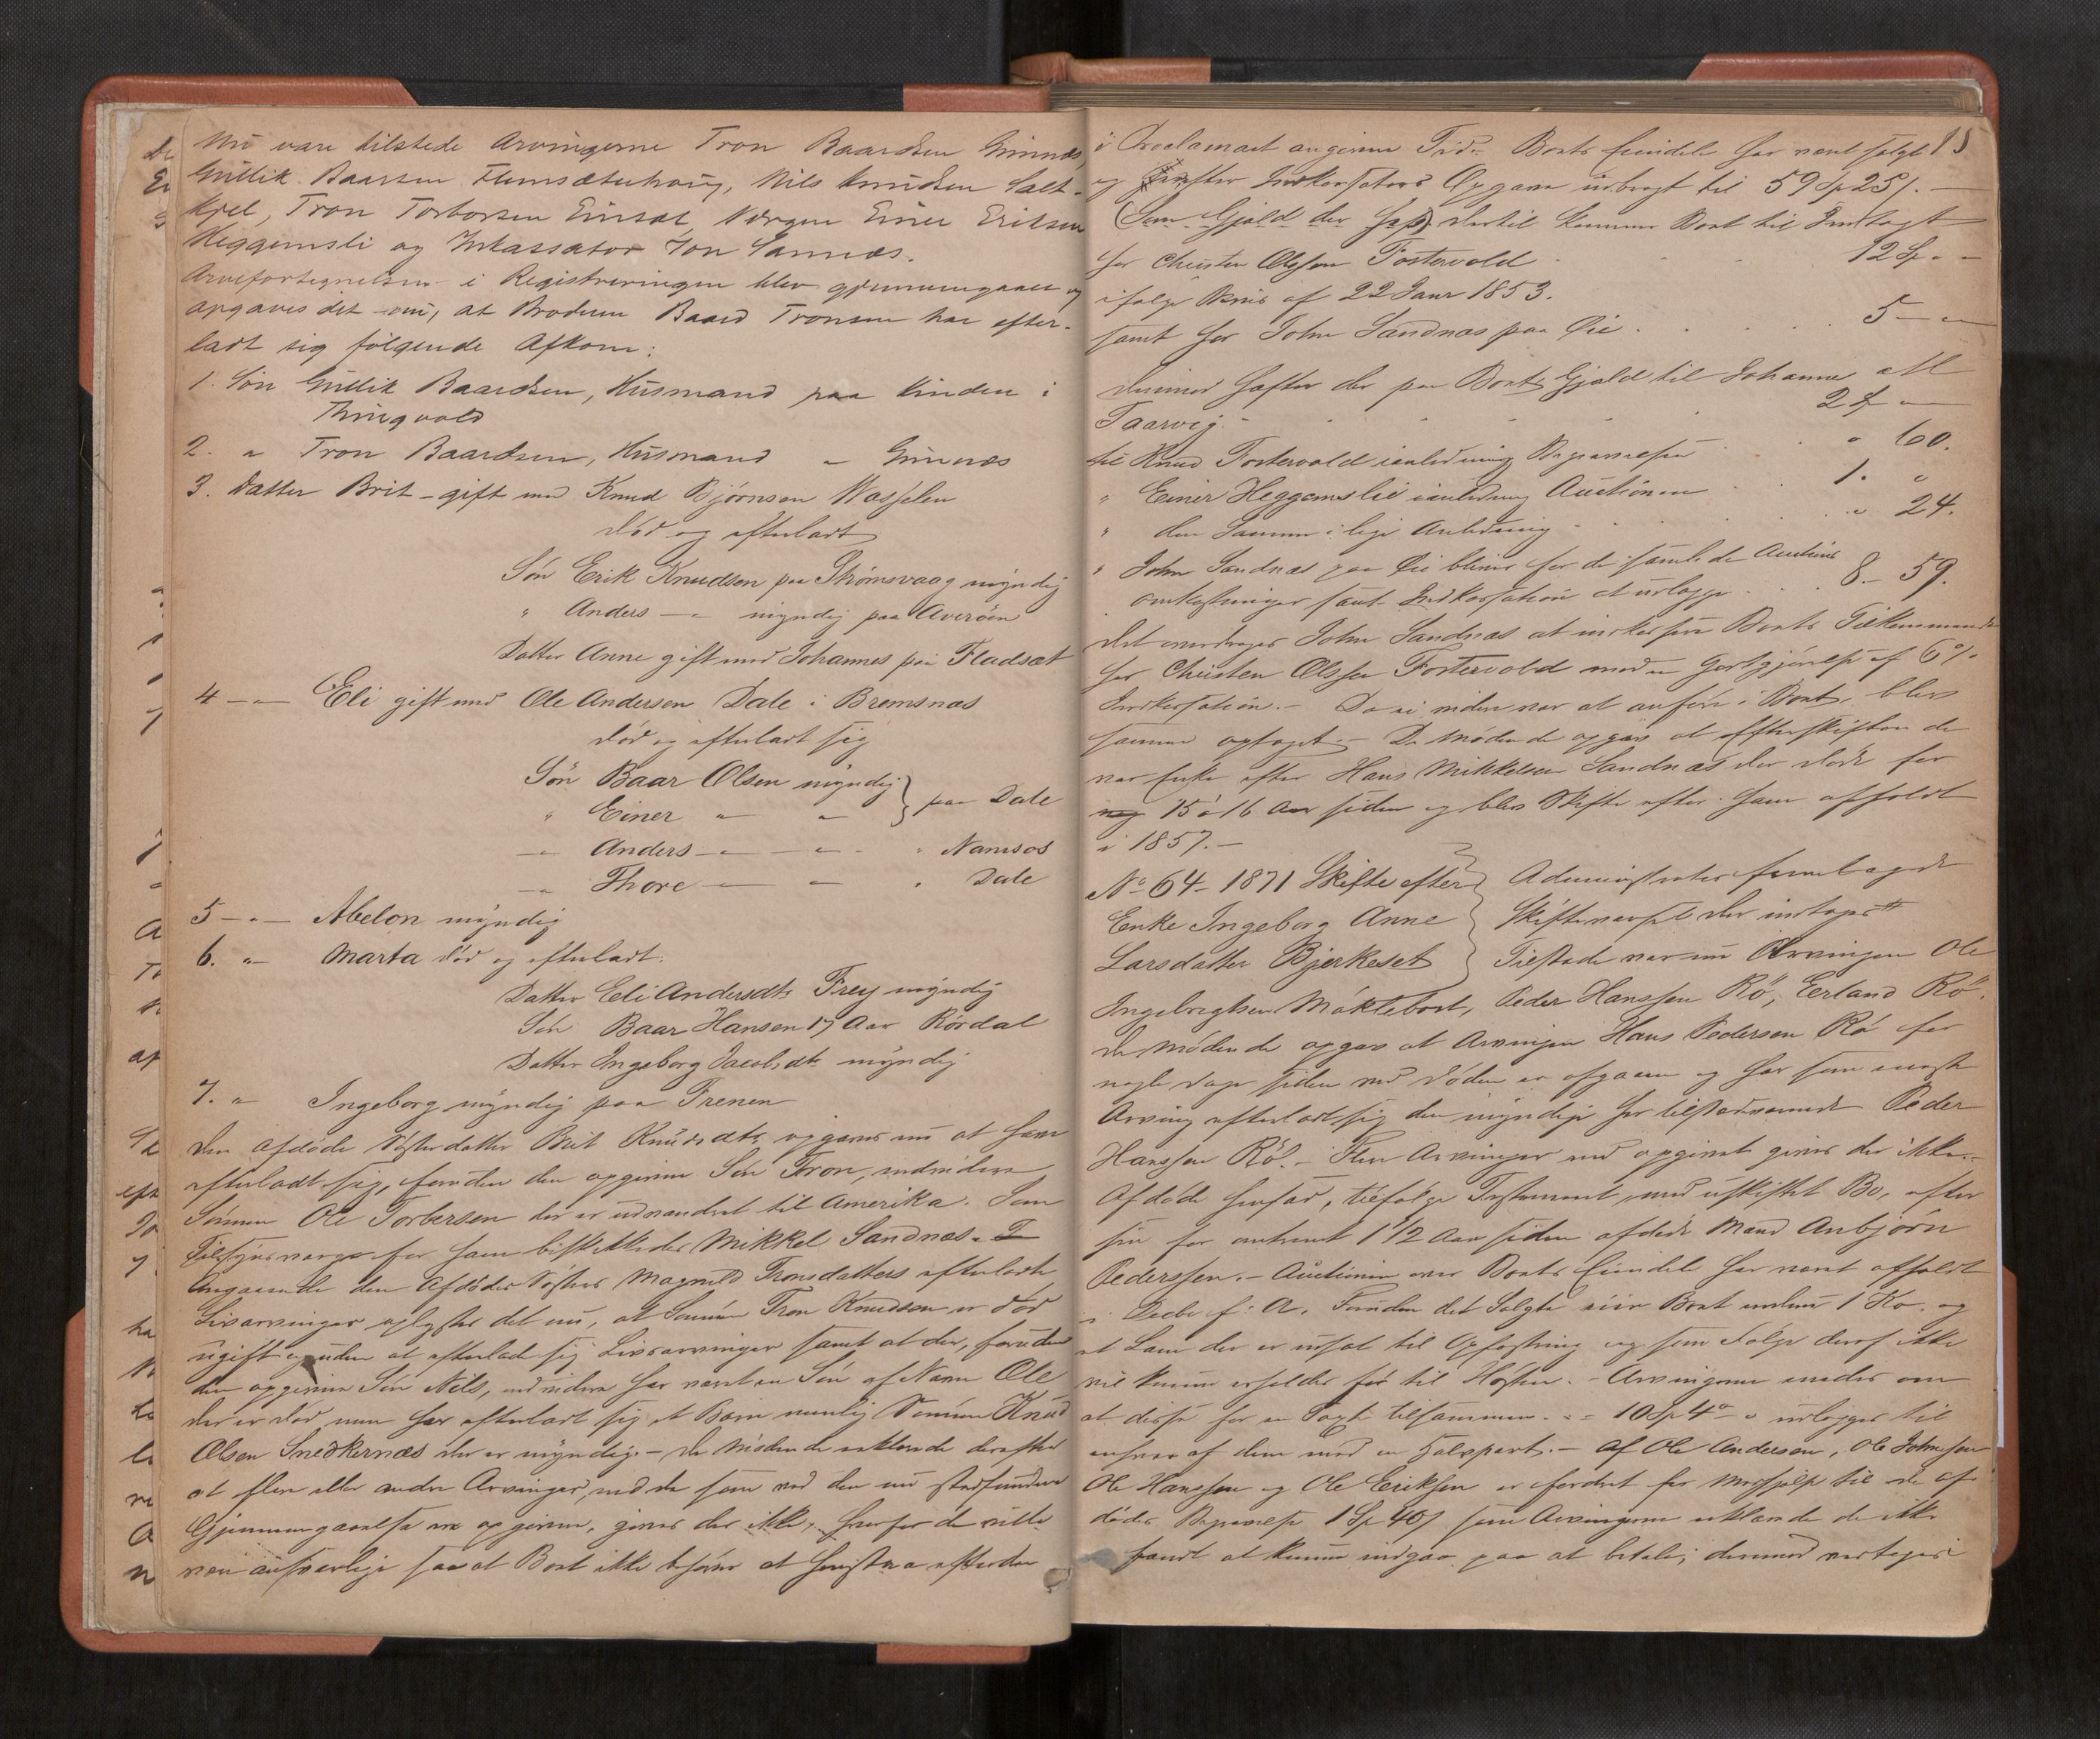 Nu vare tilstede Arvingerne Tron Baardsen Grinnæs,
Gullik Baarsen Flemsæterhaug, Nils Knudsen Salt-
kjel, Tron Torborsen Einsæt, Værgen Einer Eriksen
Heggemsli og Inkassator Jon Sannæs.
Arvefortegnelsen i Registreringen blev gjennemgaaet og
opgaves det nu, at Broderen Baard Tronsen har efter-
ladt sig følgende Afkom:
1. Søn Gullik Baardsen, Husmand paa Linden i
Thingvold
2. " Tron Baardsen, Husmand " Grinnæs
3. Datter Brit - gift med Knud Bjørnsen Vasslen
død og efterladt
Søn Erik Knudsen paa Strømsvaag myndig
" Anders - " - myndig paa Averøen
Datter Anne gift med Johannes paa Fladsæt
4 - " - Eli gift med Ole Andersen Dale i Bremsnæs
død og efterladt sig
Søn Baar Olsen myndig } paa Dale
" Einer " "
" Anders - " - " - " Namsos
" Thore - " - " Dale
5 - " - Abelon myndig
6. " Marta død og efterladt:
Datter Eli Andersdtr Frey myndig
Søn Baar Hansen 17 Aar Rørdal
Datter Ingeborg Jacobsdtr myndig
7. " Ingeborg myndig paa Trenen
Den afdøde Søsterdatter Brit Knudsdtr opgaves nu at have
efterladt sig, foruden den opgivne Søn Tron, endvidere
Sønnen Ole Torbersen der er udvandret til Amerika. Som
Tilsynsværge for ham beskikkedes Mikkel Sandnæs.
Angaaende den Afdødes Søster Magnild Tronsdatters efterladte
Livsarvinger oplystes det nu, at Sønnen Tron Knudsen er død
ugift og uden at efterlade sig Livsarvinger samt at der, foruden
den opgivne Søn Nils, endvidere har været en Søn af Navn Ole
der er død, men har efterladt sig et Barn nemlig Sønnen Knud
Olsen Snedkernæs der er myndig. - De Mødende erklærede derefter
at flere eller andre Arvinger, end de som ved den nu stedfundne
Gjennemgaaelse ere opgivne, gives der ikke, hvorfor de ville
være ansvarlige saa at Boet ikke behøver at henstaa efter den
i Proclamaet angivne Tid. Boets Eiendele har været solgt 15
og efter Inkassators Opgave udbragt til 59 Sp 25 s. -
dertil kommer Boet til Indtægt
hos Christen Olsen Fostervold 12 Sp " "
ifølge Bevis af 22 Janr 1853.
samt hos John Sandnæs paa Øie 5 - "
Derimod hæfter der paa Boet Gjæld til Johanne
Taarvig 2 Sp "
til Knud Fostervold i anledning Begravelsen " 60.
" Einer Heggemslie i anledning Auctionen 1. "
" den Samme i lige Anledning " 24.
" John Sandnæs paa Øie bliver for de samlede Auctions
omkostninger samt Indkassation at udlægge 8 - 59.
Det overdrages John Sandnæs at indkassere Boets Tilkommende
hos Christen Olsen Fostervold mod en Godtgjørelse af 6 %
Indkassation. - Da ei videre var at anføre i Boet, blev
samme optaget. - De Mødende opgav at Afdøde
var Enke efter Hans Mikkelsen Sandnæs der døde for
15 a 16 Aar siden og blev Skifte efter ham afholdt
i 1857. -
No 64 - 1871 Skifte efter } Administrator foretaget
Enke Ingeborg Anne
Larsdatter Bjerkeset } Tilstede var nu Arvingen Ole
Ingebrigtsen Møklebost, Peder Hanssen Rø, Eerland Rø.
De Mødende opgav at Arvingen Hans Pedersen Rø for
nogle Dage siden ved Døden er afgaaen og har som eneste
Arving efterladt sig den myndige her tilstedeværende Peder
Hanssen Rø. - Flere Arvinger end opgivet gives der ikke. -
Afdøde hensad, ifølge Testament, med uskiftet Bo, efter
sin for omtrent 1 1/2 Aar siden afdøde Mand Anbjørn
Pedersen. - Auctionen over Boets Eiendele har været afholdt
i Decbr f: A. Foruden det Solgte eier Boet endnu 1 Ko og
et Lam der er udsat til Opfostring og som Følge deraf ikke
vil kunne erholdes før til Høsten. - Arvingerne enedes om
at disse for en Taxt tilsammen " " 10 Sp 4 " udlægges til
enhver af dem med en Halvpart. - Af Ole Andersen, Ole Johnsen
Ole Hanssen og Ole Eriksen er fordret for Medhjælp til den af
dødes Begravelse 1 Sp 40 s som Arvingerne erklærede de ikke
fandt at kunne indgaa paa at betale; derimod vedtoges